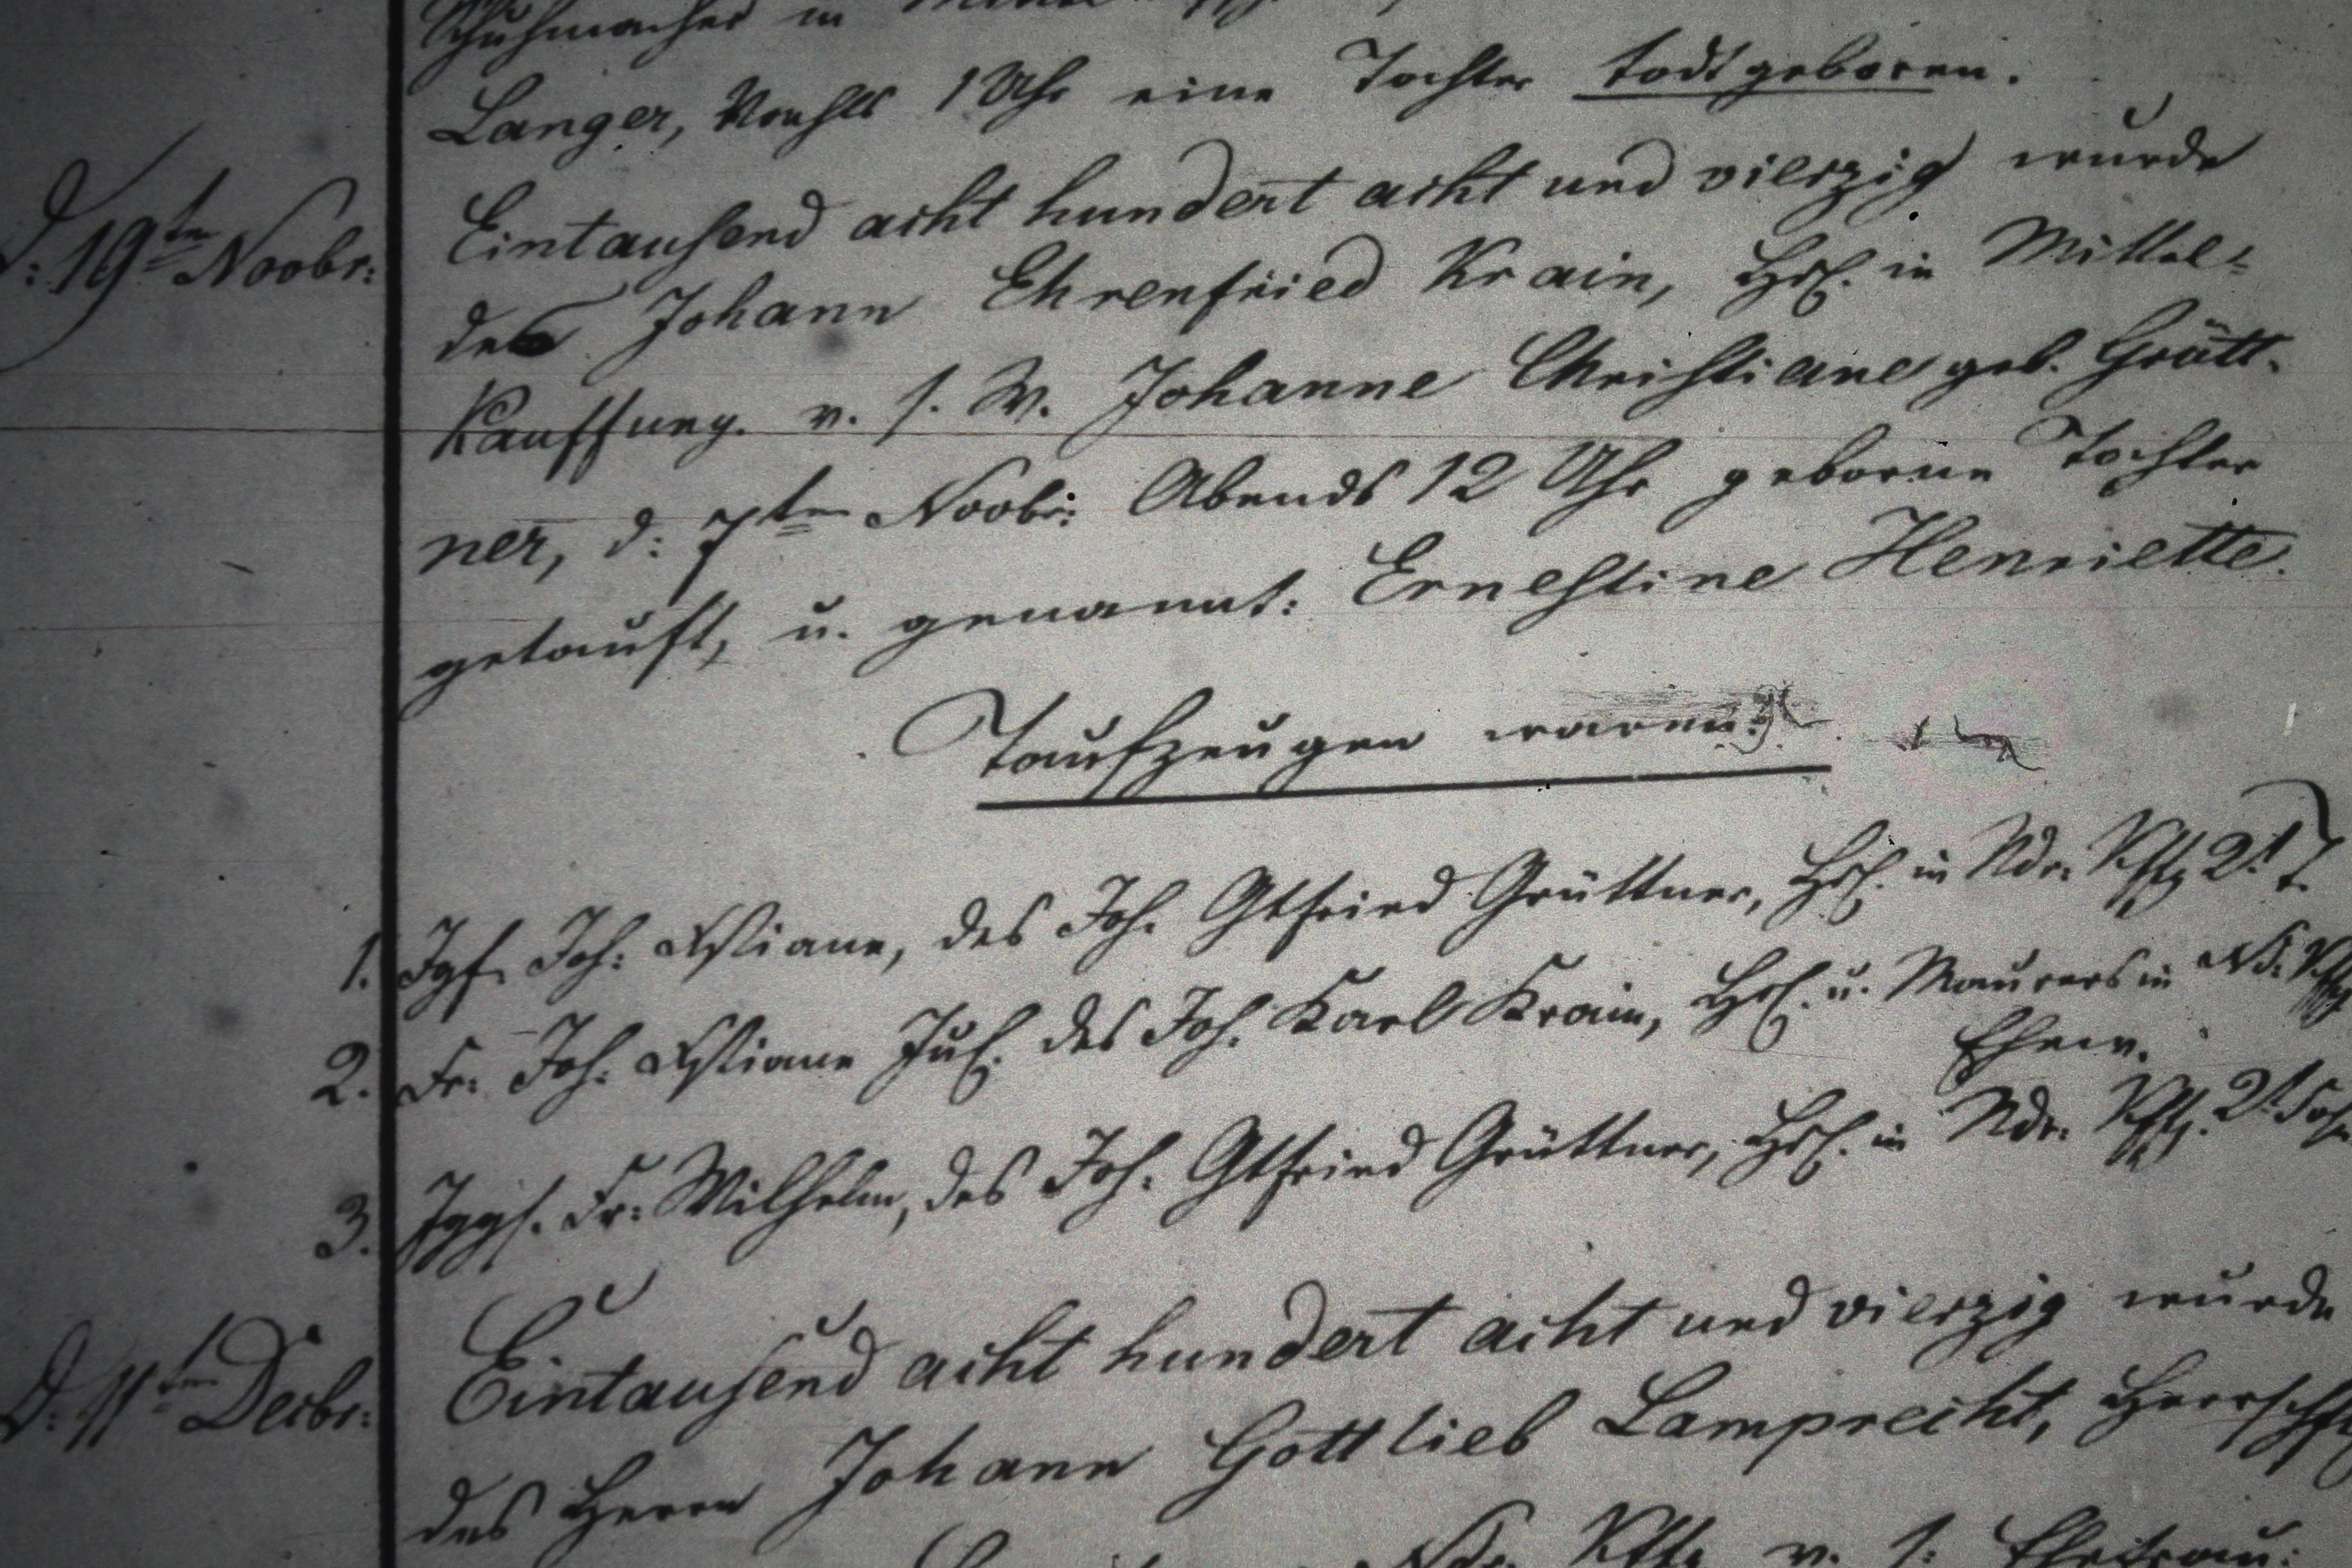 Schuhmacher in
Langer, Nachts 1 Uhr eine Tochter todtgeboren.
d: 19ten Novbr: Eintausend acht hundert acht und vierzig wurde
des Johann Ehrenfried Krain, Hsl. in Mittel-
Kauffung. v. s. W. Johanne Christiane geb. Grütt-
ner, d: 7ten Novbr: Abends 12 Uhr geborne Tochter
getauft, u. genannt: Ernestine Henriette.
Taufzeugen waren:
1. Jgf. Joh: Xstiane, des Joh. Gtfried Grüttner, Hsl. in Ndr: Kffg 2t T.
2. Fr: Joh: Xstiane Jul. des Joh. Karl Krain, Hsl. u. Maurers in Nd: Kffg
Ehew.
3. Jggs. Fr: Wilhelm, des Joh: Gtfried Grüttner, Hsl. in Ndr: Kffg. 2t Sohn
D. 11ten Decbr: Eintausend acht hundert acht und vierzig wurde
des Herrn Johann Gottlieb Lamprecht, Herrschftl
Ndr. Kffg v. s: